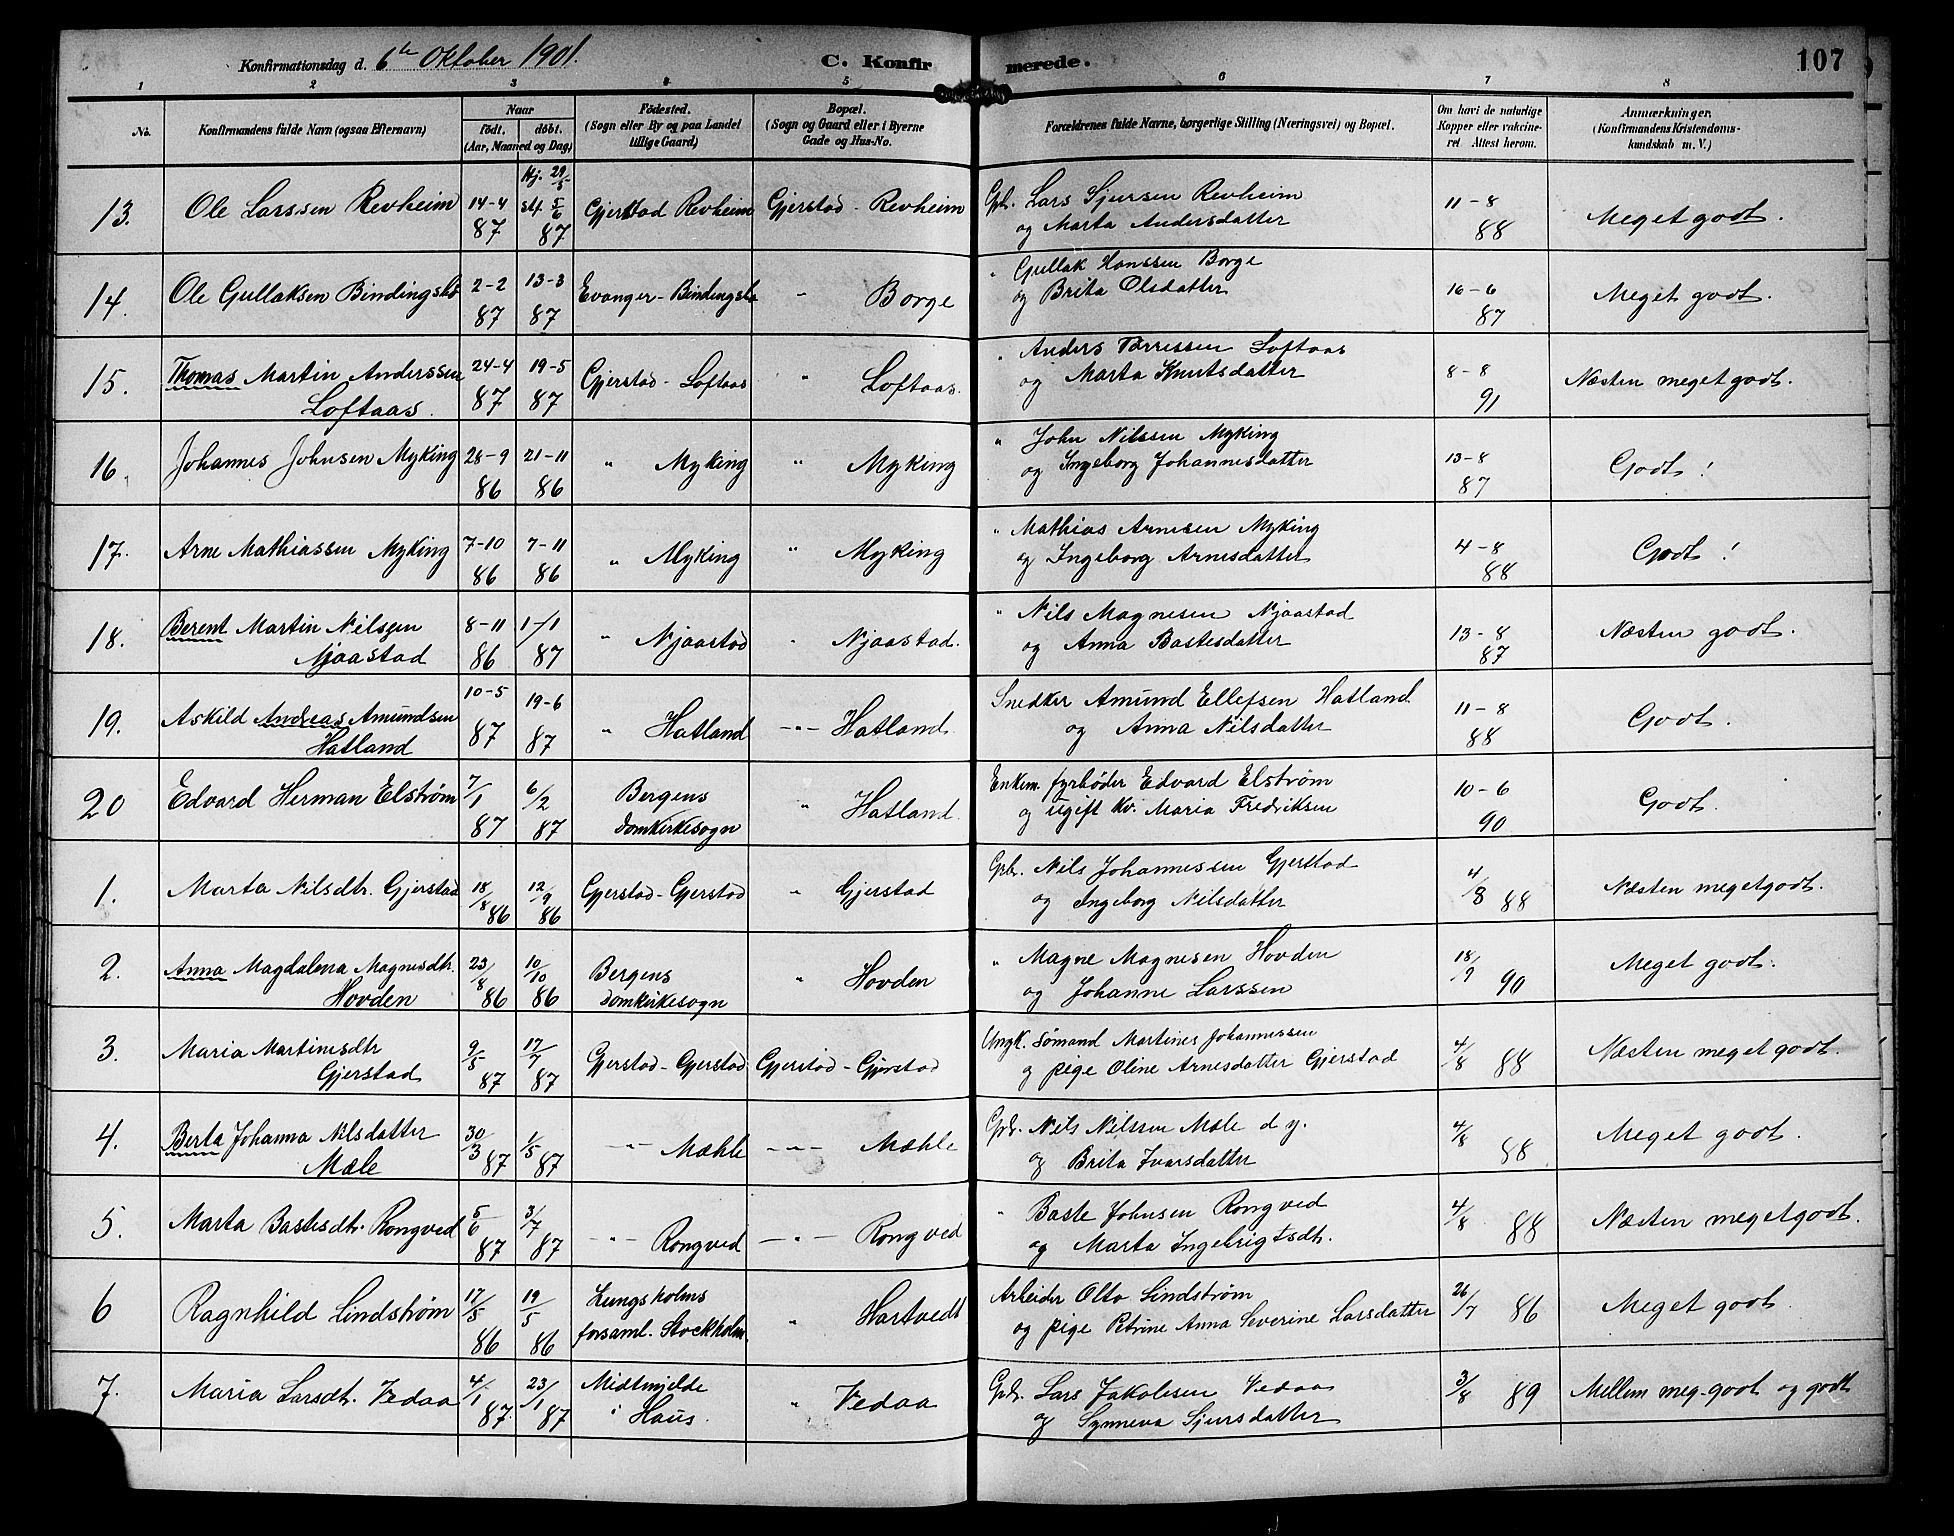 Konfirmationsdag d. 6te Oktober 1901. C. Konfirmerede. 107
1 2 3 4 5 6 7 8
No. Konfirmandens fulde Navn (ogsaa Efternavn) Naar født. døbt. (Aar, Maaned og Dag) Fødested. (Sogn eller By og paa Landet tillige Gaard) Bopæl. (Sogn og Gaard eller i Byerne Gade og Hus-No. Forældrenes fulde Navne, borgerlige Stilling (Næringsvei) og Bopæl. Om havt de naturlige Kopper eller vakcineret Attest herom. Anmærkninger. (Konfirmandens Kristendomskundskab m. V.)
13. Ole Larssen Revheim 14-4 87 Hj. 29/5 st. 5/6 87 Gjerstad Revheim Gjerstad - Revheim Gbr. Lars Sjursen Revheim og Marta Andersdatter 11-8 88 Meget godt.
14. Ole Gullaksen Bindingsbø 2-2 87 13-3 87 Evanger - Bindingsbø " Borge " Gullak Hanssen Borge og Brita Olsdatter 16-6 87 Meget godt.
15. Thomas Martin Anderssen Loftaas. 24-4 87 19-5 87 Gjerstad - Loftaas " Loftaas. " Anders Tørressen Loftaas og Marta Knutsdatter 8-8 91 Næsten meget godt.
16. Johannes Johnsen Myking 28-9 86 21-11 86 " Myking " Myking " John Nilssen Myking og Ingeborg Johannesdatter 13-8 87 Godt!
17. Arne Mathiassen Myking 7-10 86 7-11 86 " Myking " Myking " Mathias Arnesen Myking og Ingeborg Arnesdatter 4-8 88 Godt!
18. Berent Martin Nilsen Njaastad 8-11 86 1/1 87 " Njaastad " Njaastad. " Nils Magnesen Njaastad og Anna Bastesdatter 13-8 87 Næsten godt.
19. Askild Andreas Amundsen Hatland 10-5 87 19-6 87 " Hatland -"- Hatland. Snedker Amund Ellefsen Hatland og Anna Nilsdatter 11-8 88 Godt.
20 Edvard Herman Elstrøm 7/1 87 6/2 87 Bergens Domkirkesogn " Hatland. Enkem. fyrbøder Edvard Elstrøm og ugift Kv. Maria Fredriksen 10-6 90 Godt.
1. Marta Nilsdtr. Gjerstad 18/8 86 12/9 86 Gjerstad - Gjerstad " Gjerstad Gbr. Nils Johannessen Gjerstad og Ingeborg Nilsdatter 4/8 88 Næsten meget godt.
2. Anna Magdalena Magnesdtr. Hovden 23/8 86 10/10 86 Bergens Domkirkesogn " Hovden " Magne Magnesen Hovden og Johanne Larssen 18/9 90 Meget godt.
3. Maria Martinesdtr Gjerstad 9/5 87 17/7 87 Gjerstad - Gjerstad Gjerstad - Gjerstad Ungk. Sømand Martines Johannessen og pige Oline Arnesdatter Gjerstad 4/8 88 Næsten meget godt.
4. Berta Johanna Nilsdatter Mæle 30/3 87 1/5 87 -"- Mæhle -"- Mæhle Gbr. Nils Nilssen Mæle d y. og Brita Ivarsdatter 4/8 88 Meget godt.
5. Marta Bastesdtr. Rongved 5/6 87 3/7 87 -"- Rongved -"- Rongved " Baste Johnsen Rongved og Marta Ingebrigtsdtr. 4/8 88 Næsten meget godt.
6 Ragnhild Lindstrøm 17/5 86 19/5 86 Kungsholms forsaml. Stockholm " Hartvedt Arbeider Otto Lindstrøm og pige Petrine Anna Severine Larsdatter 26/7 86 Meget godt.
7. Maria Larsdtr. Vedaa 4/1 87. 23/1 87 Midtmjelde i Haus. " Vedaa Gbr. Lars Jakobsen Vedaa og Synneva Sjursdatter 3/8 89 Mellem meg. godt og godt